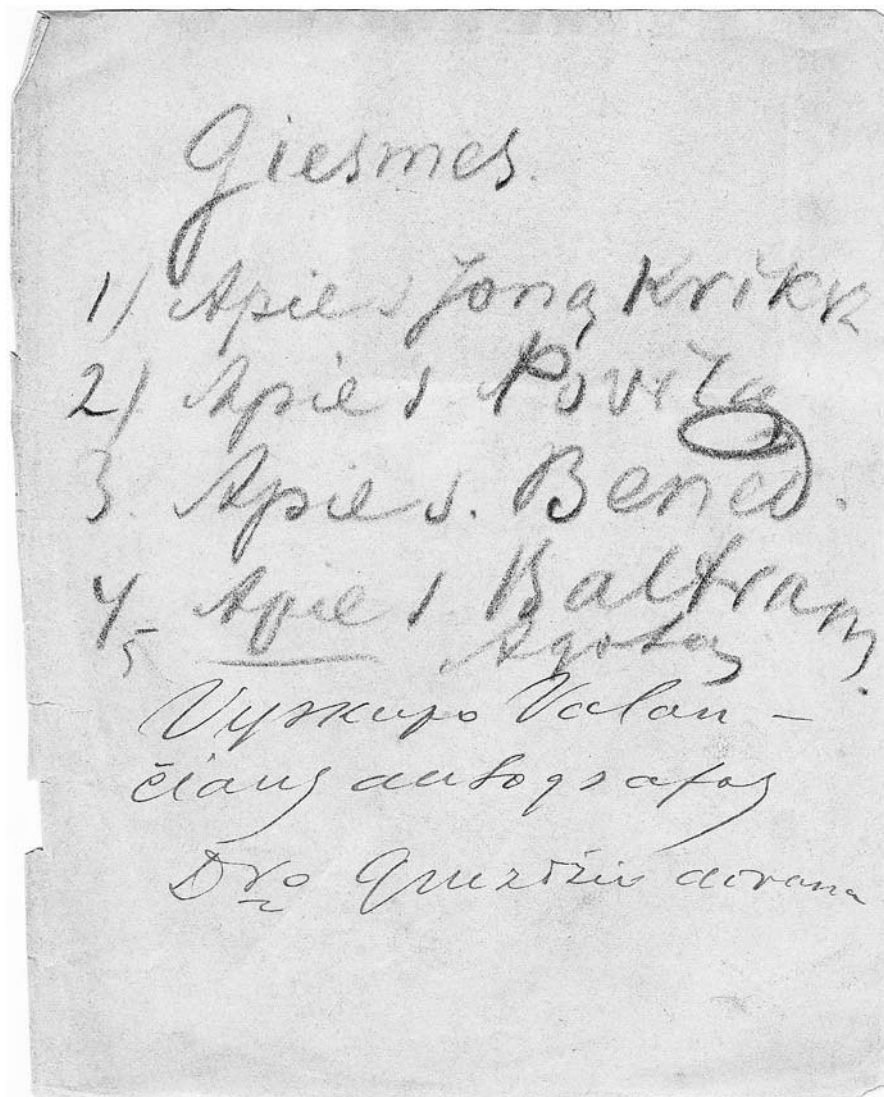 Giesmes.
1) Apie s Joną Krikšt
2) Apie s. Povilą
3. Apie s. Bened.
4 Apie s Baltram.
5 Agotą
Vyskupo Valan-
čiaus autografas
Dro dovana